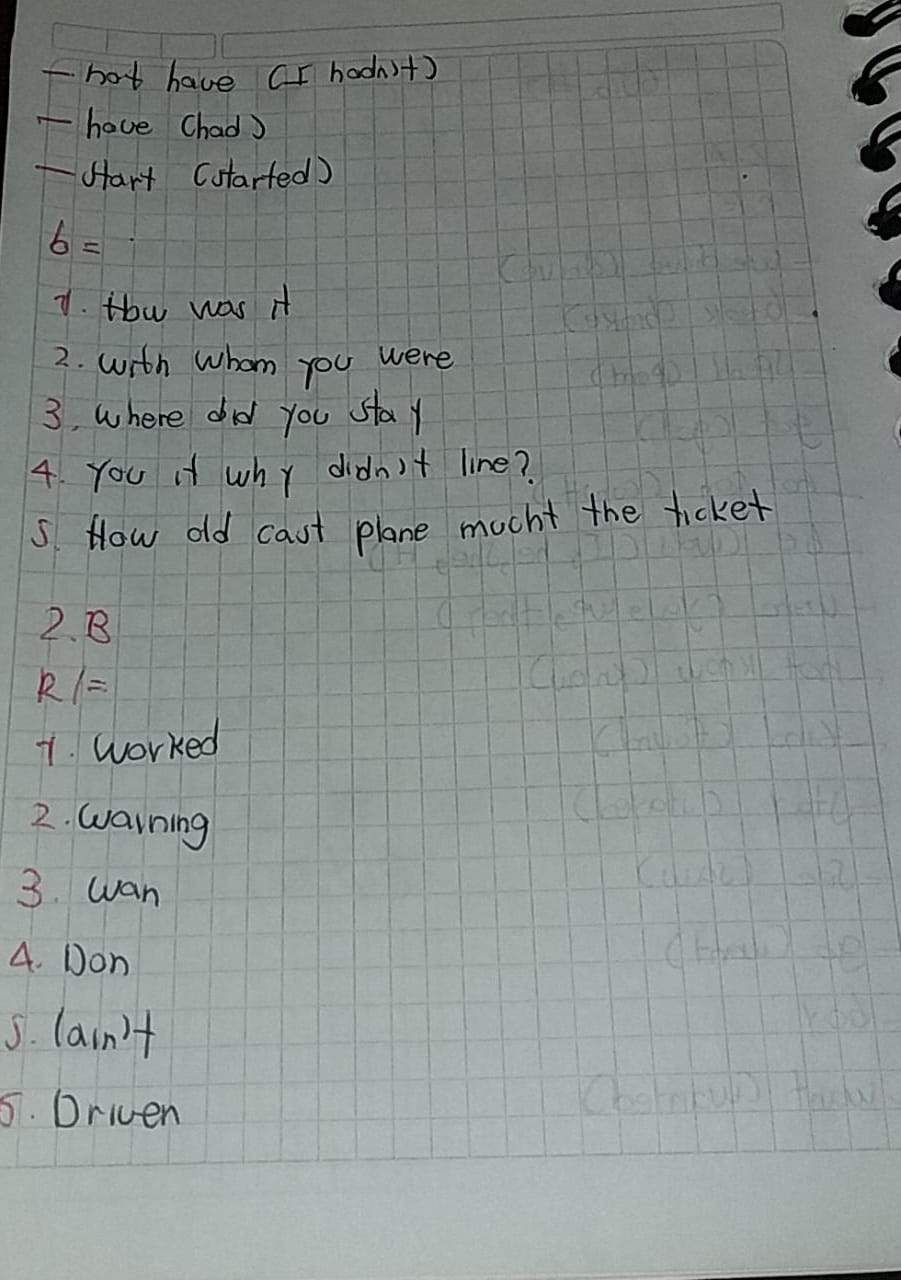 - not have (I hadn't)
- have (had)
- start (started)
6 =
1. How was it
2. with whom you were
3. where did you stay
4. You it why didn't line?
5. How old cast plane mucht the ticket
2.B
R/=
1. Worked
2. Warning
3. Wan
4. Don
5. (ain't
5. Driven